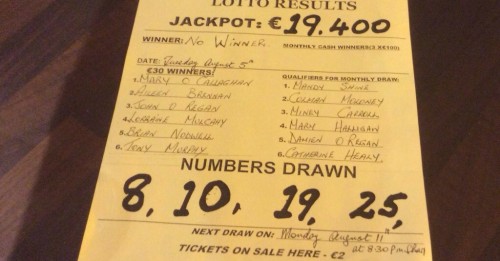 LOTTO RESULTS
JACKPOT: €19.400
WINNER: No WINNER.
MONTHLY CASH WINNERS(3 X€100)
DATE: Tuesday August 5th
€30 WINNERS:
1. MARY O CALLAGHAN
2. AILEEN BRENNAN
3. JOHN O REGAN
4. LORRAINE MULCAHY
5. BRIAN
6. TONY MURPHY
QUALIFIERS FOR MONTHLY DRAW:
1. MANDY SHINE
2. COLMAN MOLONEY
3. MINDY CARROLL
4. MARY HALLIGAN
5. DAMIEN O REGAN
6. CATHERINE HEALY.
NUMBERS DRAWN
8, 10, 19, 25,
NEXT DRAW ON: Monday August 11th
at 8:30pm
TICKETS ON SALE HERE - €2